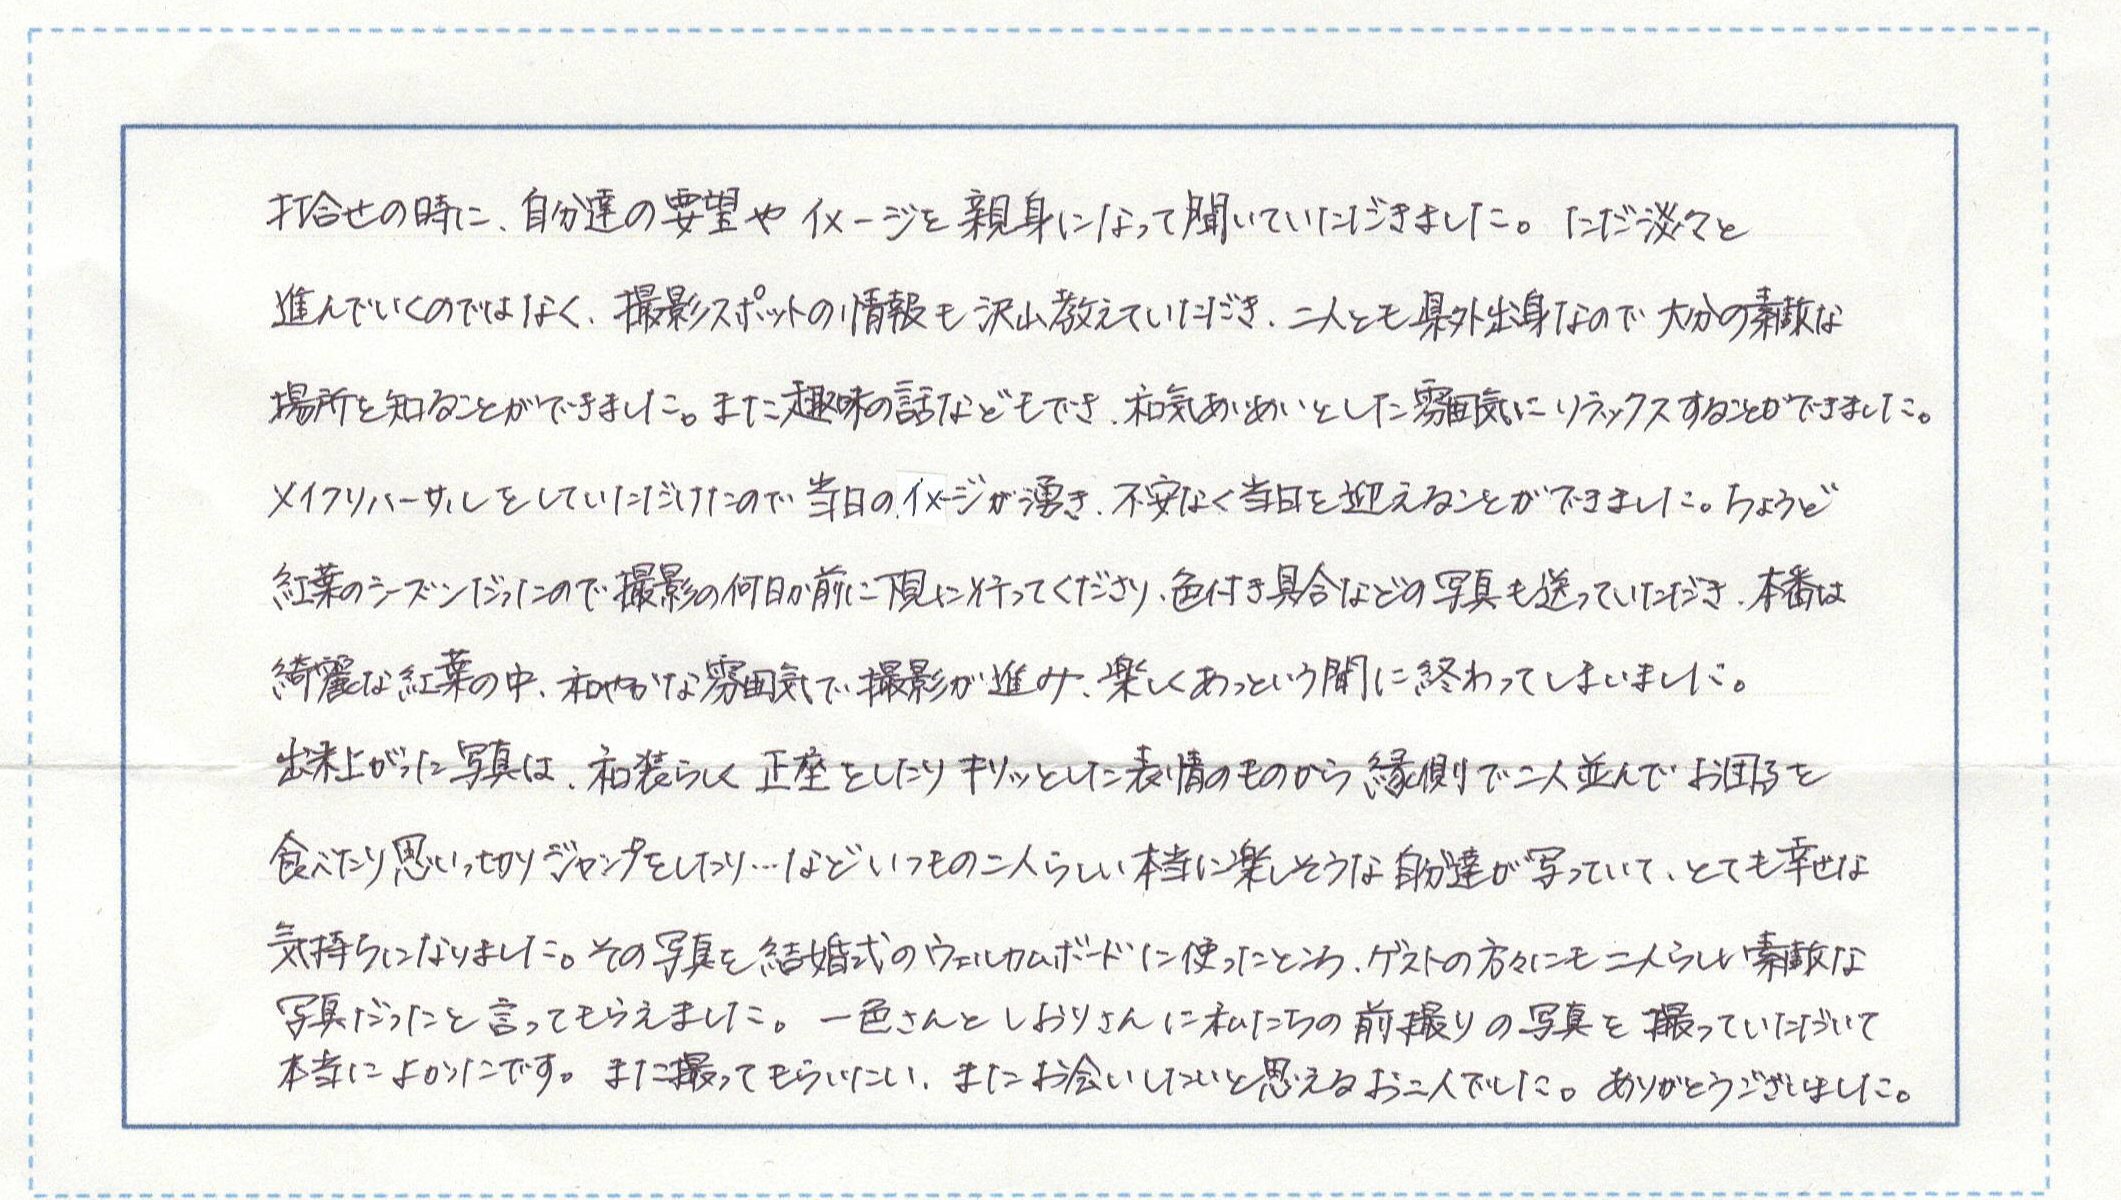 打合せの時に、自分達の要望やイメージを親身になって聞いていただきました。ただ淡々と
進んでいくのではなく、撮影スポットの情報も沢山教えていただき、二人とも県外出身なので大分の素敵な
場所を知ることができました。また趣味の話などもでき、和気あいあいとした雰囲気にリラックスすることができました。
メイクリハーサルをしていただけたので当日のイメージが湧き、不安なく当日を迎えることができました。ちょうど
紅葉のシーズンだったので撮影の何日か前に下見に行ってくださり、色付き具合などの写真も送っていただき、本番は
綺麗な紅葉の中、和やかな雰囲気で撮影が進み、楽しくあっという間に終わってしまいました。
出来上がった写真は、和装らしく正座をしたりキリッとした表情のものから縁側で二人並んでお団子を
食べたり思いっ切りジャンプをしたり…などいつもの二人らしい本当に楽しそうな自分達が写っていて、とても幸せな
気持ちになりました。その写真を結婚式のウェルカムボードに使ったところ、ゲストの方々にも二人らしい素敵な
写真だったと言ってもらえました。一色さんとしおりさんに私たちの前撮りの写真を撮っていただいて
本当によかったです。また撮ってもらいたい、またお会いしたいと思えるお二人でした。ありがとうございました。